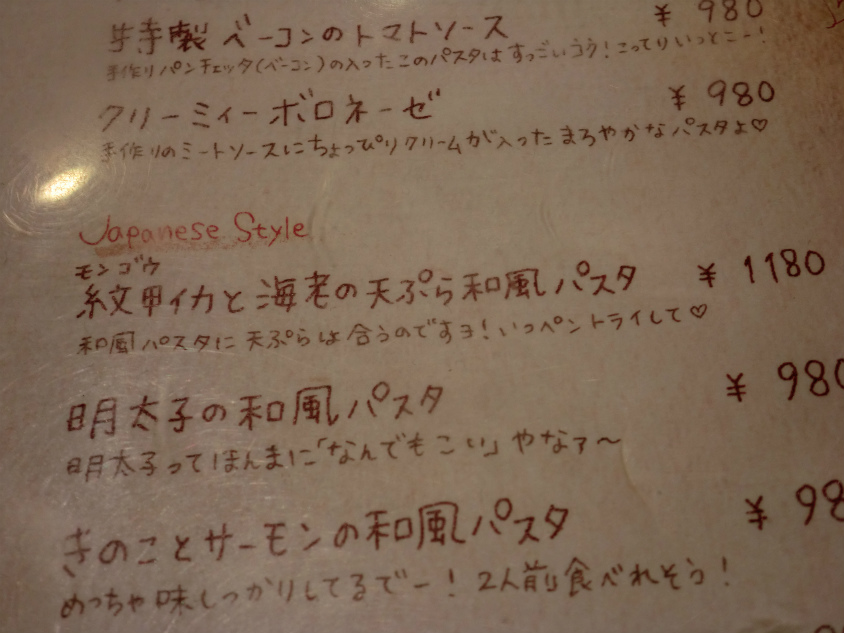 特製ベーコンのトマトソース ¥980
手作りパンチェッタ(ベーコン)の入ったこのパスタはすっごいうう!こってりいっとこー!
クリーミィーボロネーゼ ¥980
手作りのミートソースにちょっぴりクリームが入ったまろやかなパスタよ♡
Japanese Style
モンゴウ
紋甲イカと海老の天ぷら和風パスタ ¥1180
和風パスタに天ぷらは合うのですヨ!いっペントライして♡
明太子の和風パスタ ¥980
明太子ってほんまに「なんでもこい」やなァ〜
きのことサーモンの和風パスタ ¥98
めっちゃ味しっかりしてるでー!2人前食べれそう!